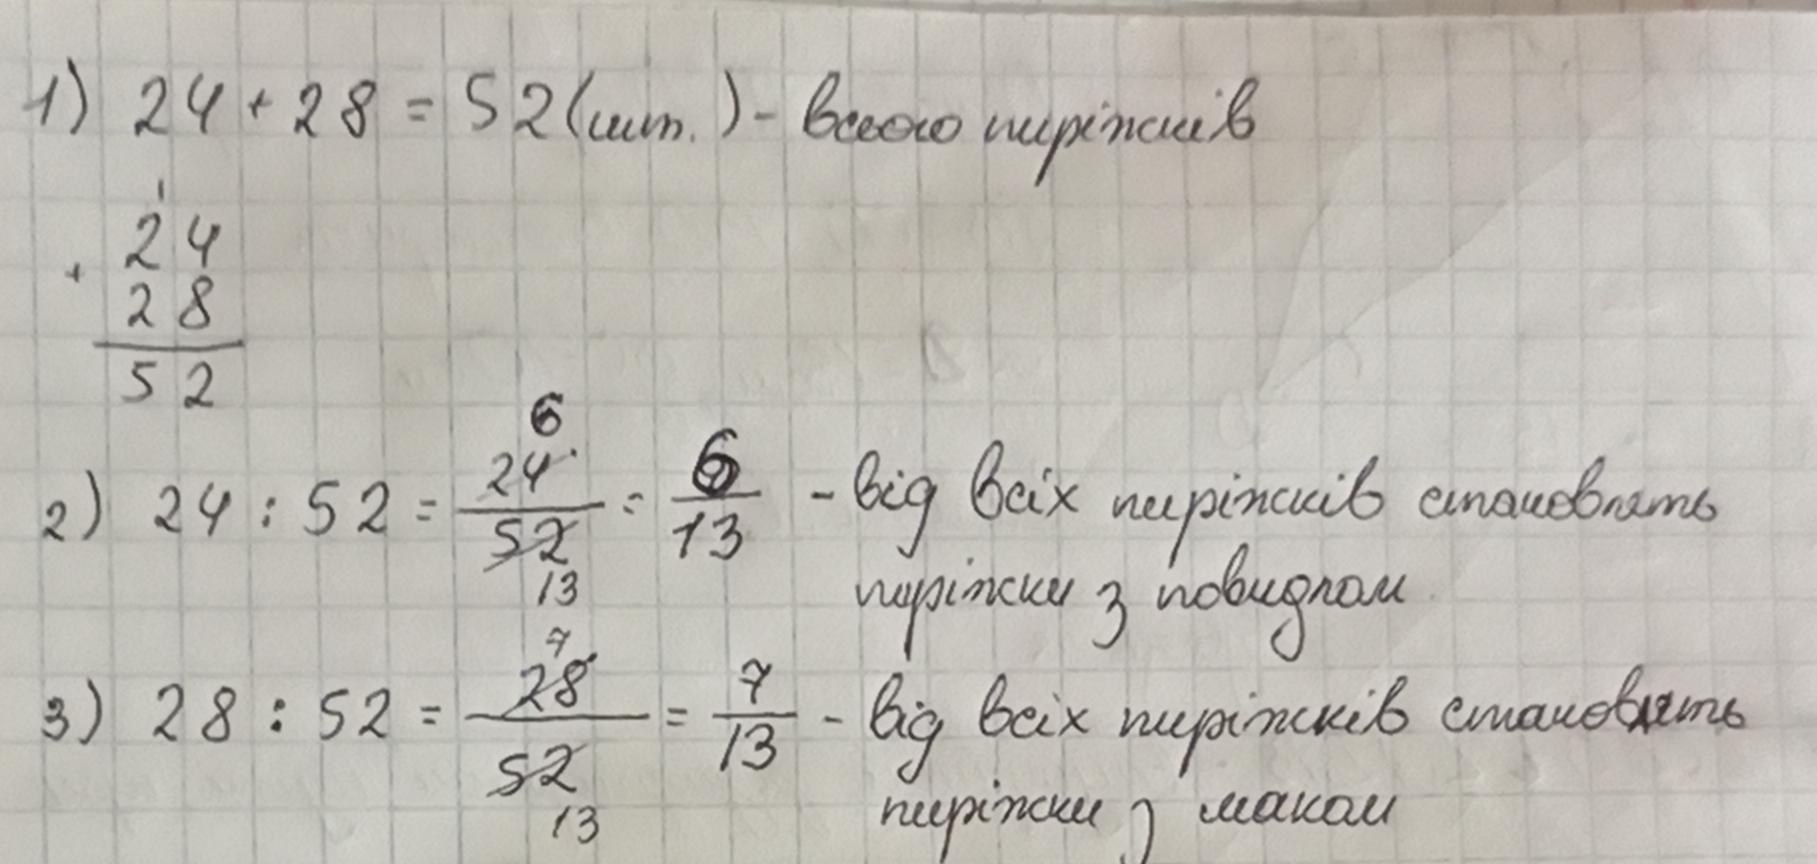 1) 24 + 28 = 52 (шт.) - всього пиріжків
1
24
+
28
52
6
2) 24 : 52 = 24/52 = 6/13 - від всіх пиріжків становлять
13 пиріжки з повидлом
7
3) 28 : 52 = 28/52 = 7/13 - від всіх пиріжків становлять
13 пиріжки з маком